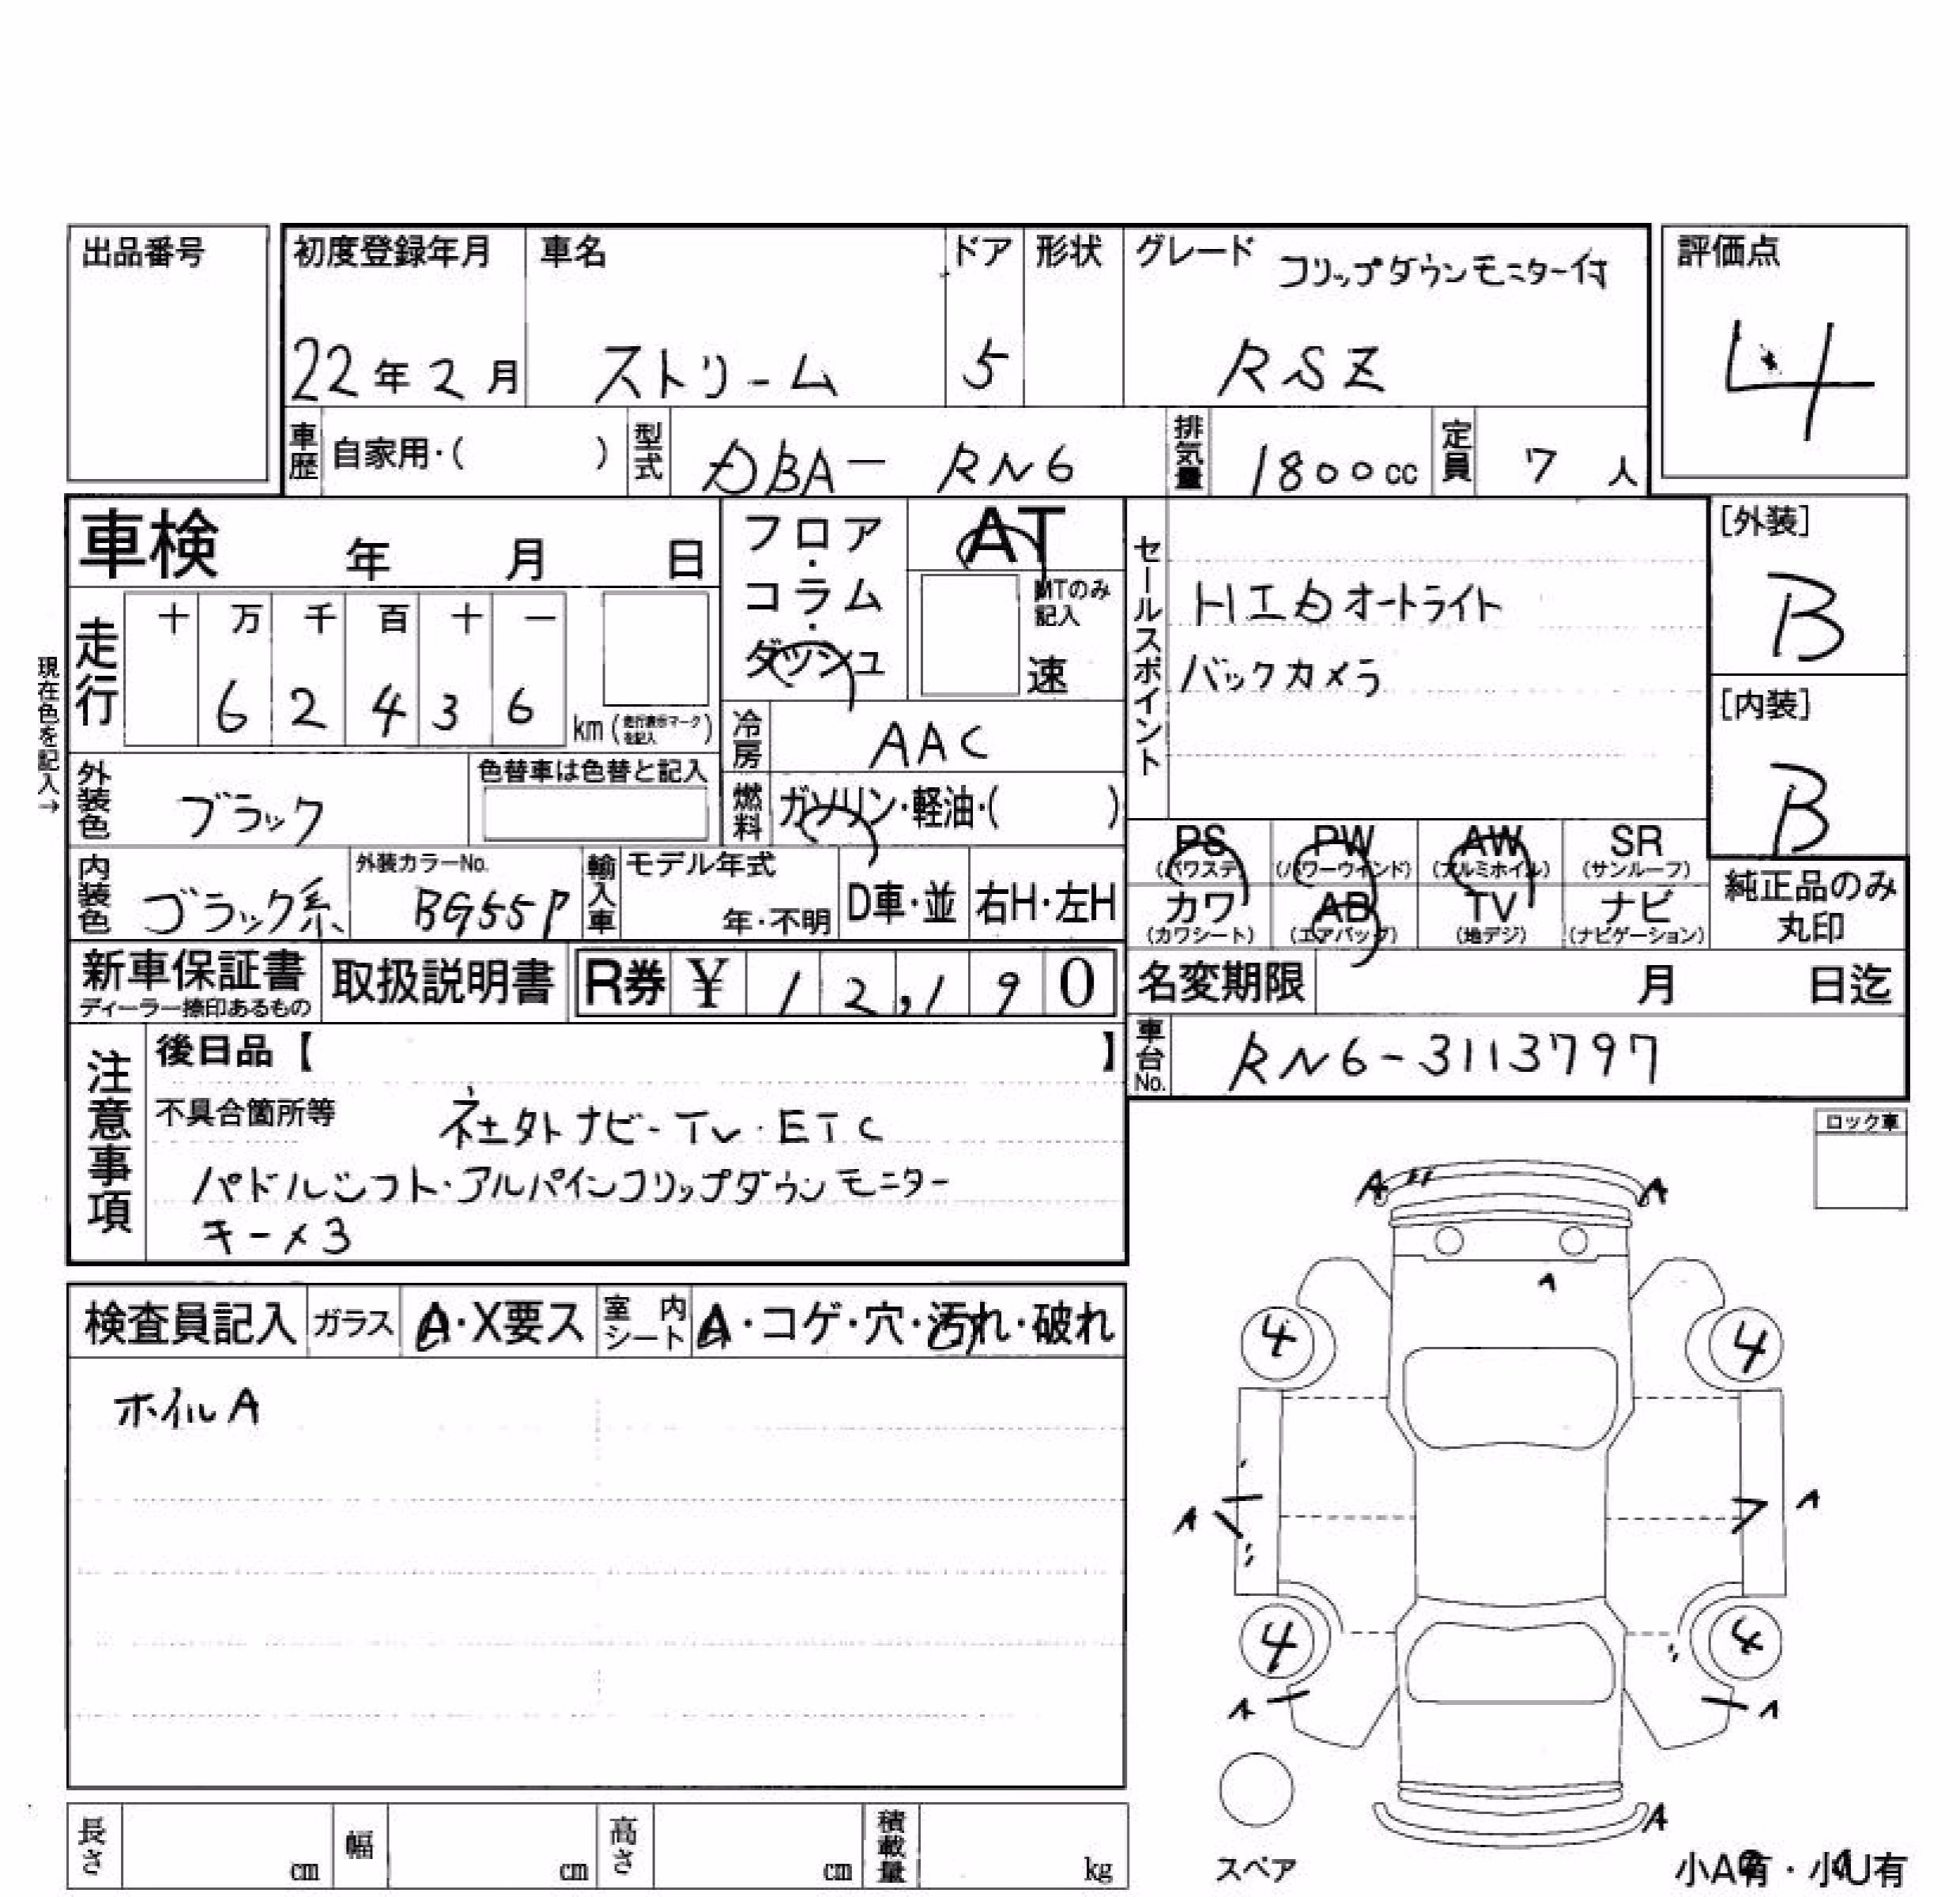 出品番号
初度登録年月 車名 ドア 形状 グレード フリップダウンモニター付 評価点
22年2月 ストリーム 5 RSZ 4
車歴 自家用・( ) 型式 DBA- RN6 排気量 1800cc 定員 7人
車検 年 月 日
フロア・コラム・ダッシュ
AT
MTのみ記入
速
セールスポイント
HIDオートライト
バックカメラ
[外装]
B
[内装]
B
現在色を記入→
走行 十 万 千 百 十 一
6 2 4 3 6 km (走行表示マークを記入)
冷房 AAC
外装色 ブラック 色替車は色替と記入
燃料 ガソリン・軽油・( )
PS (パワステ) PW (パワーウィンド) AW (アルミホイル) SR (サンルーフ)
カワ (カワシート) AB (エアバッグ) TV (地デジ) ナビ (ナビゲーション)
純正品のみ丸印
内装色 ブラック系 外装カラーNo. BG55P 輸入車 モデル年式 年・不明 D車・並 右H・左H
新車保証書 ディーラー捺印あるもの 取扱説明書 R券 ¥ 12,190
名変期限 月 日迄
車台No. RN6-3113797
注意事項
後日品【 】
不具合箇所等 社外ナビ-TV・ETC
パドルシフト・アルパインフリップダウンモニター
キー×3
ロック車
検査員記入 ガラス A・X要ス 室内シート A・コゲ・穴・汚れ・破れ
ホイルA
A A
A
4 4
A A
4 4
A A
A
スペア
小A有・小U有
長さ cm 幅 cm 高さ cm 積載量 kg